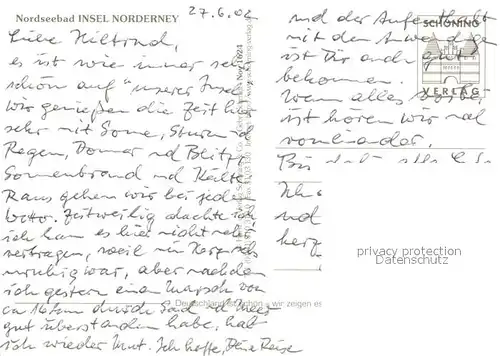 Nordseebad INSEL NORDERNEY
27.6.02
Liebe Hiltrud,
es ist wie immer sehr
schön auf "unserer Insel
wir genießen die Zeit hier
sehr mit Sonne, Sturm und
Regen, Donner und Blitz,
Sonnenbrand und Kälte
Raus gehen wir bei jedem
Zeitweilig dachte ich
ich kann es hier nicht mehr
vertragen, weil mein Herz sehr
unruhig war, aber nachdem
ich gestern einen Marsch von
ca 16 km durch Sand und Meer
gut überstanden habe, hab
ich wieder Mut. Ich hoffe, Deine Reise
und der Aufenthalt
mit den Anwendungen
ist Dir auch gut
bekommen.
Wenn alles vorbei
ist hören wir mal
voneinander.
Bis
und
herz
SCHÖNING
VERLAG
Deutschland ist schön - wir zeigen es
privacy protection
Datenschutz